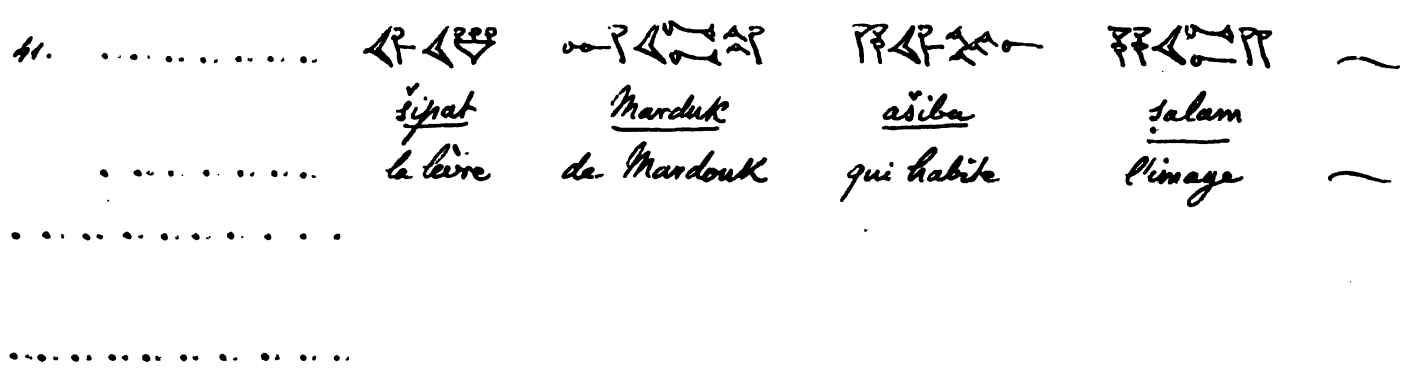 41. . . . . . . . .
šipat Marduk ašiba ṣalam
. . . . . . . . la lèvre de Mardouk qui habite l'image ~
. . . . . . . . . .
. . . . . . . . . .